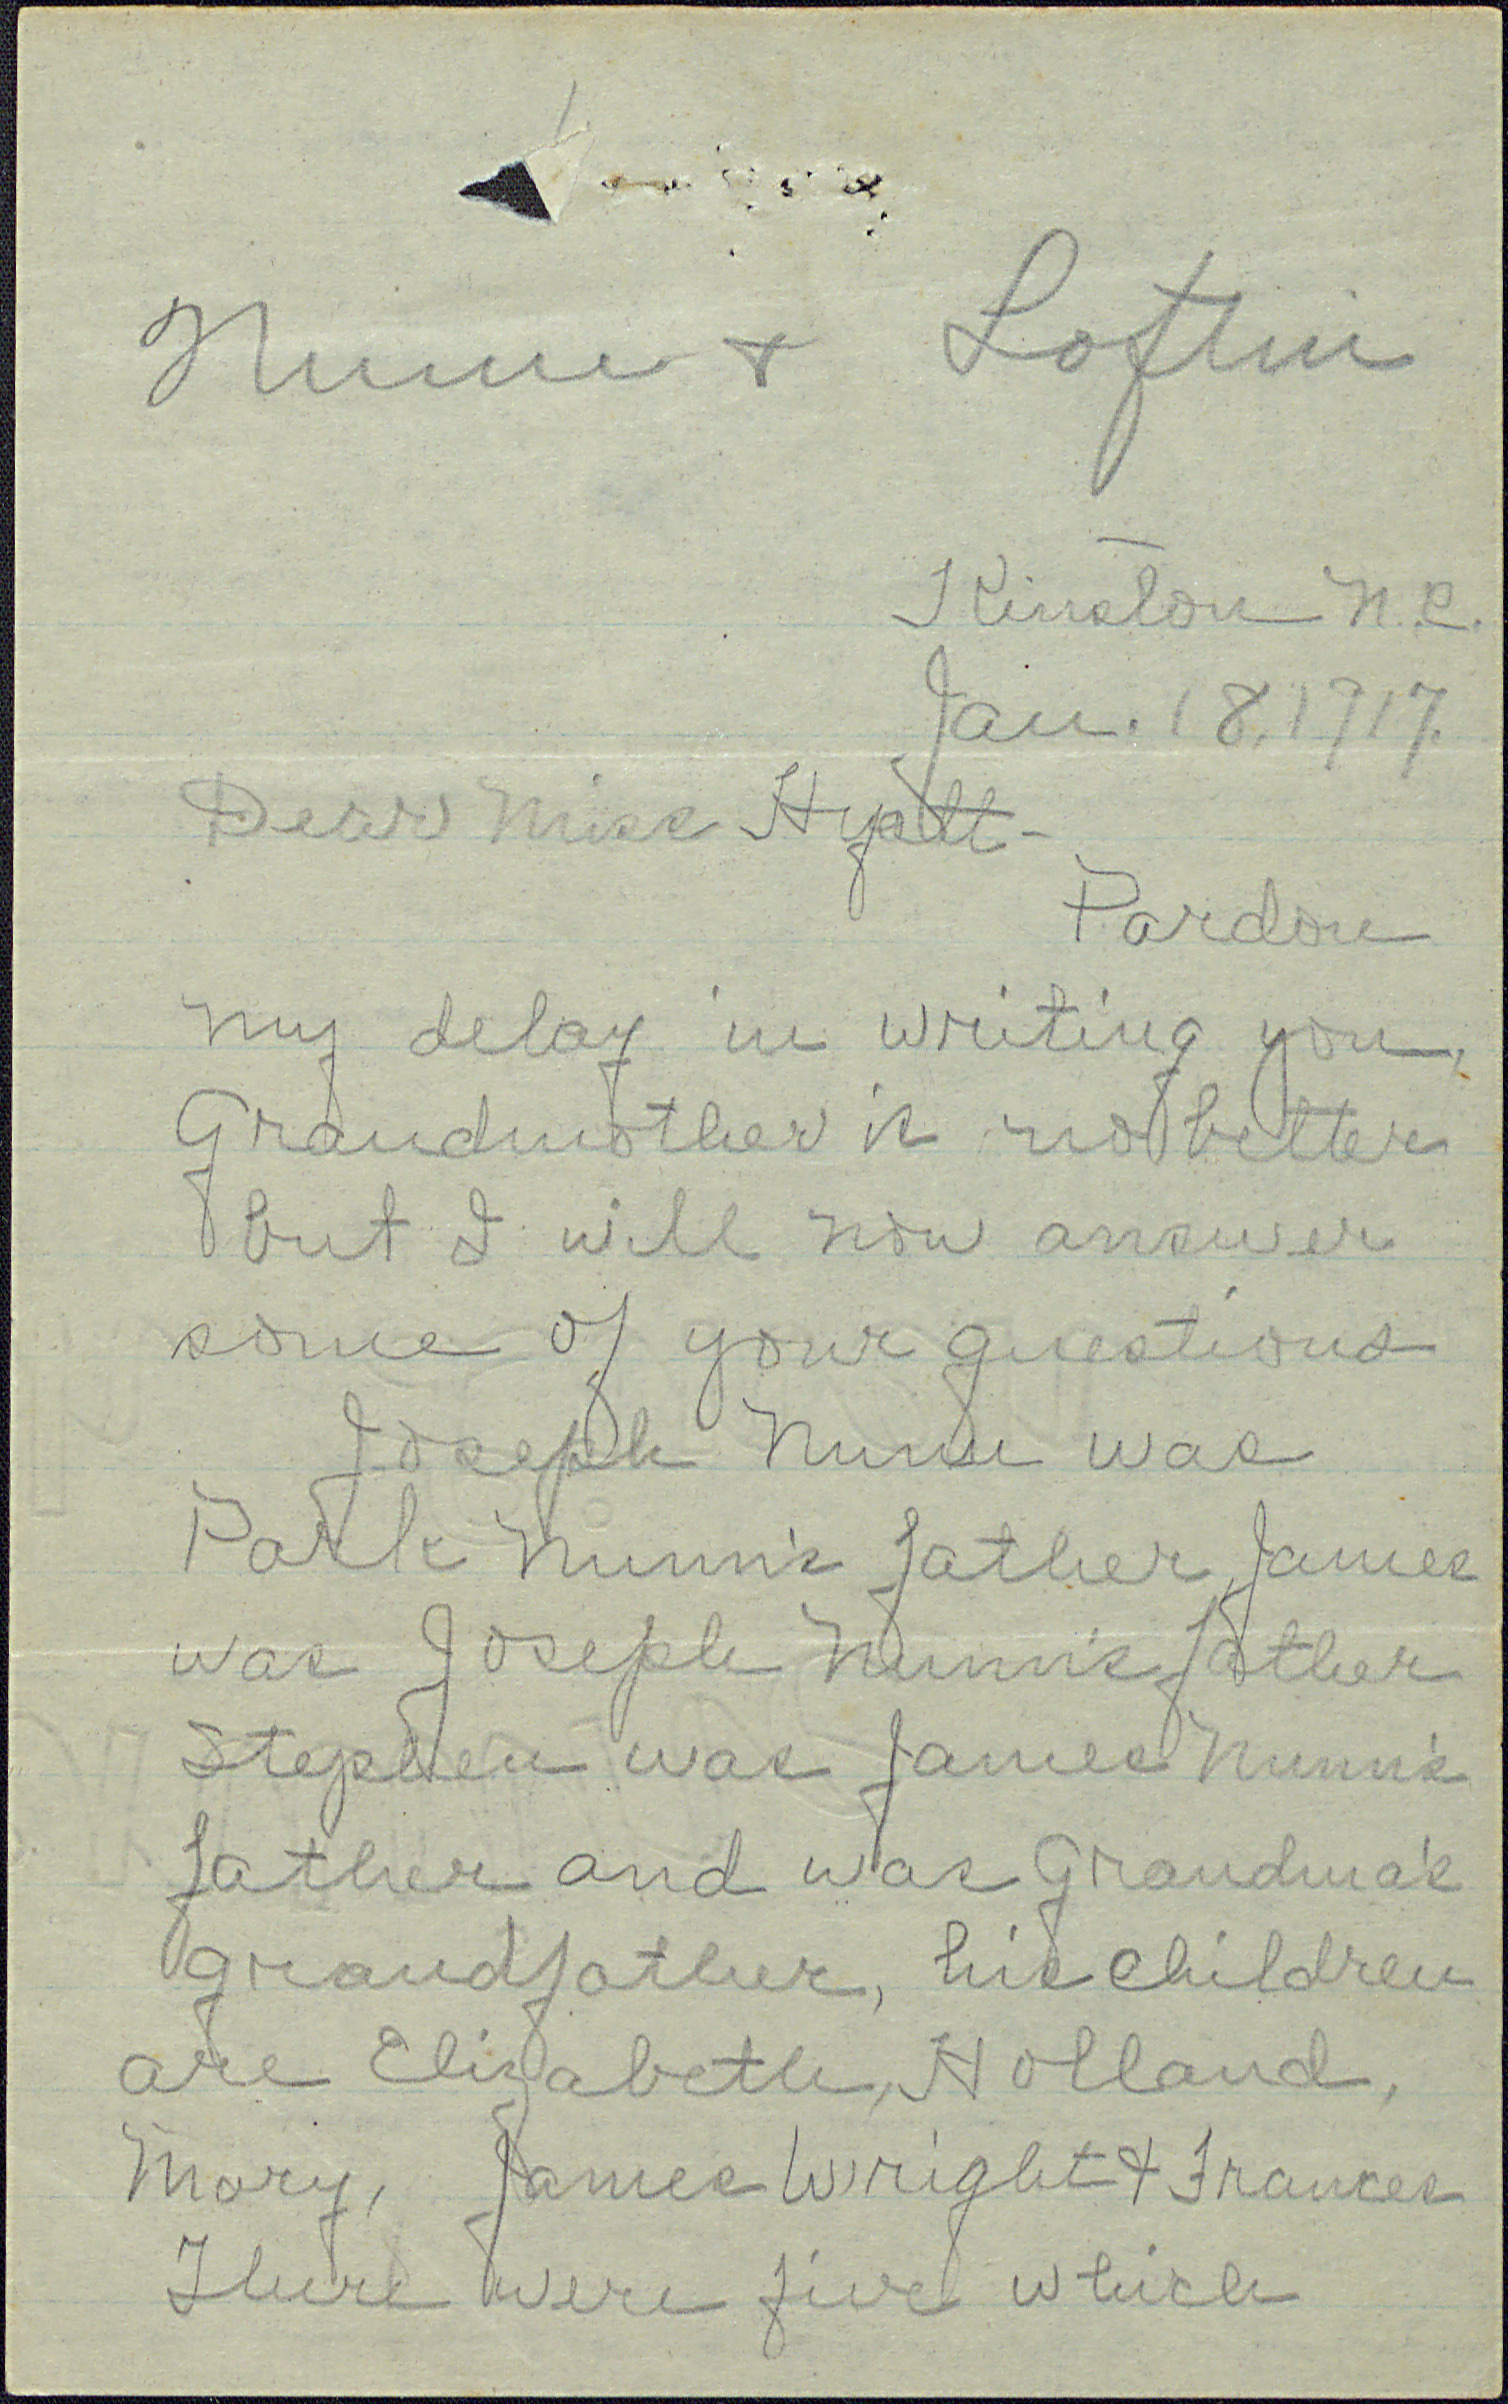 Nunn + Loftin
Kinston N.C.
Jan. 18, 1917.
Dear Miss Hyatt-
Pardon
my delay in writing you,
Grandmother is no better
but I will now answer
some of your questions
Joseph Nunn was
Park Nunn's father, James
was Joseph Nunn's father
Stephen was James Nunn's
father and was Grandma's
grandfather, his children
are Elizabeth, Holland,
Mary, James Wright + Frances
There were five which